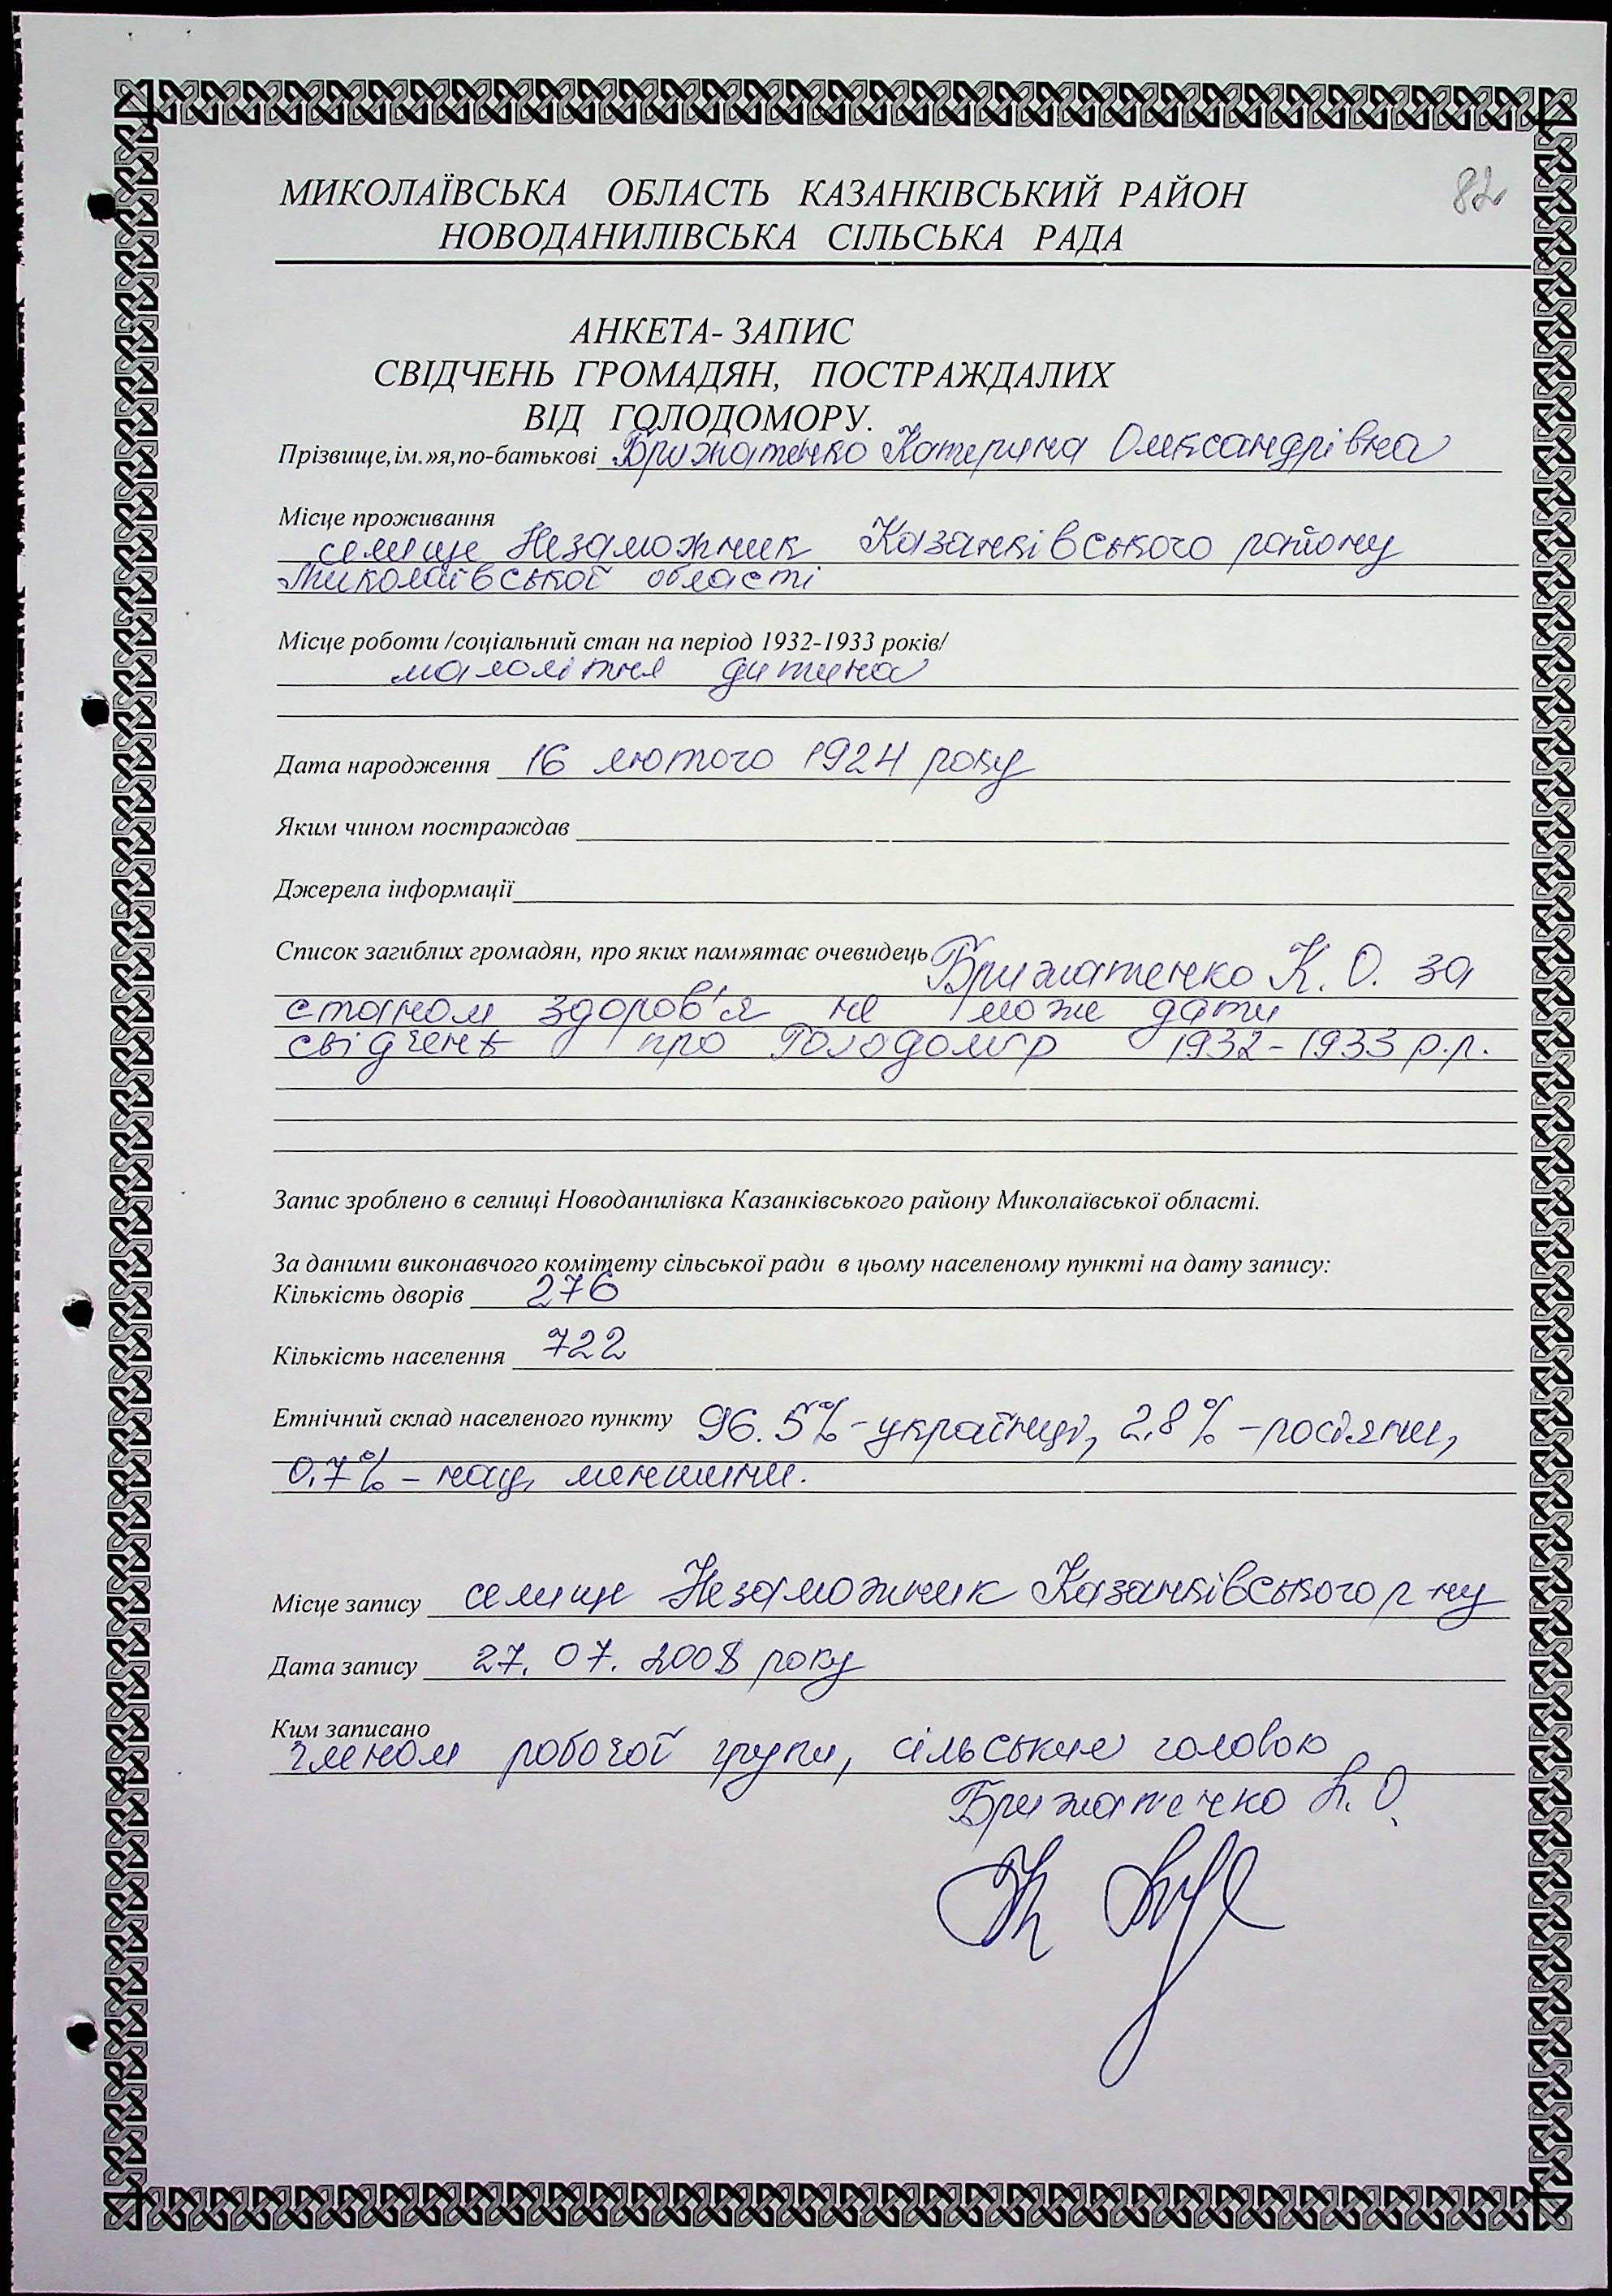 82
МИКОЛАЇВСЬКА ОБЛАСТЬ КАЗАНКІВСЬКИЙ РАЙОН
НОВОДАНИЛІВСЬКА СІЛЬСЬКА РАДА
АНКЕТА- ЗАПИС
СВІДЧЕНЬ ГРОМАДЯН, ПОСТРАЖДАЛИХ
ВІД ГОЛОДОМОРУ.
Прізвище,ім.»я,по-батькові Брижатенко Катерина Олександрівна
Місце проживання
селище Незаможник Казанківського району
Миколаївської області
Місце роботи /соціальний стан на період 1932-1933 років/
малолітня дитина
Дата народження 16 лютого 1924 року
Яким чином постраждав
Джерела інформації
Список загиблих громадян, про яких пам»ятає очевидець Брижатенко К. О. за
станом здоров'я не може дати
свідчень про Голодомор 1932-1933 р.р.
Запис зроблено в селищі Новоданилівка Казанківського району Миколаївської області.
За даними виконавчого комітету сільської ради в цьому населеному пункті на дату запису:
Кількість дворів 276
Кількість населення 722
Етнічний склад населеного пункту 96.5%-українці, 2,8%-росіяни,
0,7%-нац. меншини.
Місце запису селище Незаможник Казанківського р-ну
Дата запису 27. 07. 2008 року
Ким записано
членом робочої групи, сільським головою
Брижатенко А. О.